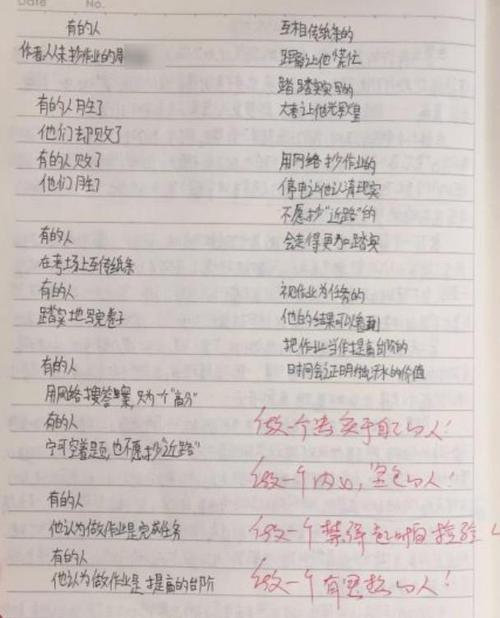 Date
No.
有的人
作者从未抄作业的周
有的人胜了
他们却败了
有的人败了
他们胜了
有的人
在考场上互传纸条
有的人
踏实地写完卷子
有的人
用网络搜答案,只为一个"高分"
有的人
宁可空着题,也不愿抄"近路"
有的人
他认为做作业是完成任务
有的人
他认为做作业是提高的台阶
互相传纸条的
距离让他"禁仕"
踏踏实实写的
大考让他光荣
用网络抄作业的
停电让他认清现实
不愿抄"近路"的
会走得更加踏实
视作业为任务的
他的结果可以看到
把作业当作提高台阶的
时间会证明他汗水的价值
做一个忠实于自己的人!
做一个内心 金色的人!
做一个禁得起时间检验
做一个有思想的人!